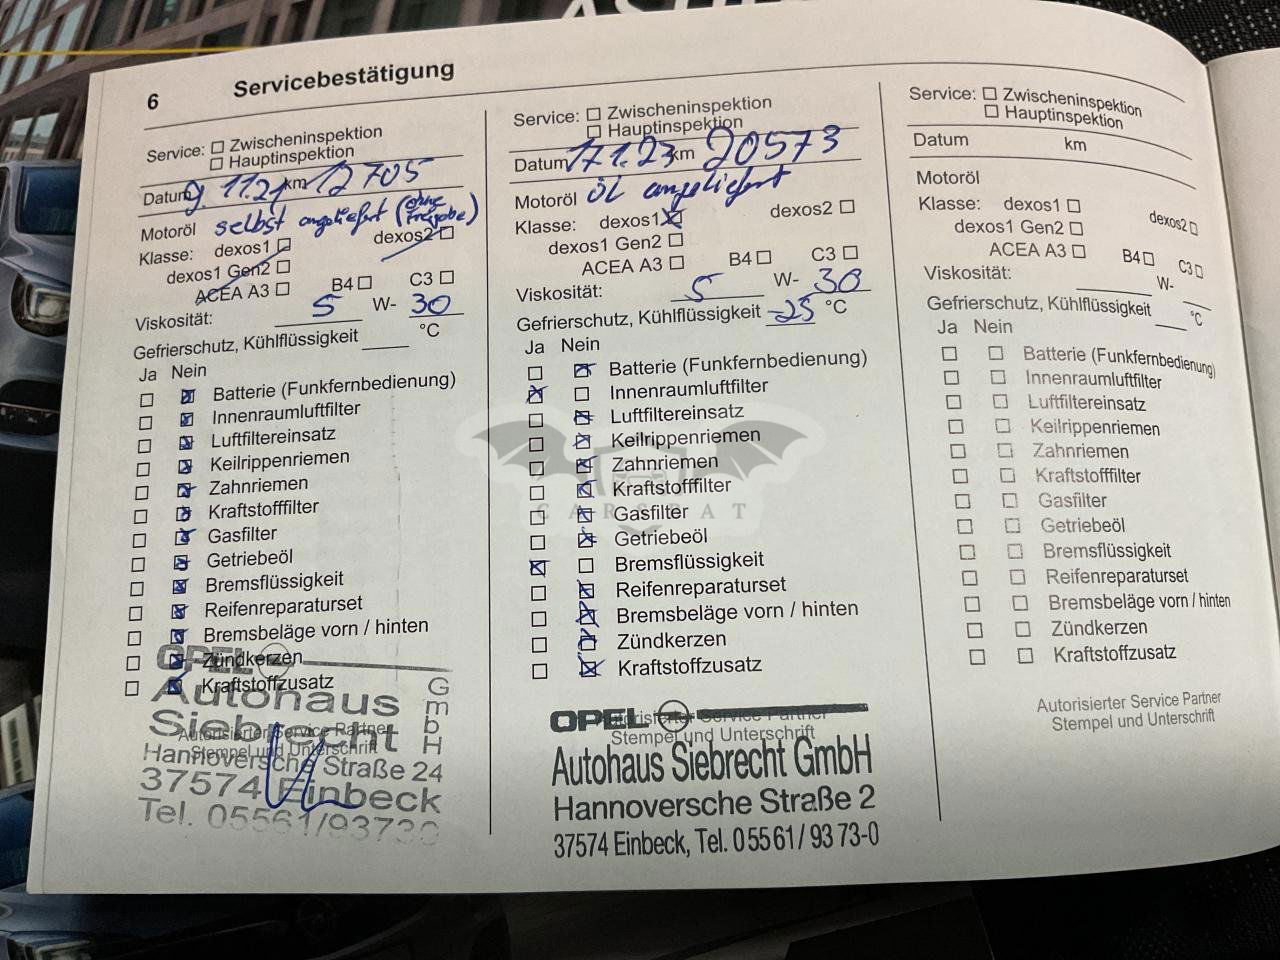 6 Servicebestätigung
Service: ☐ Zwischeninspektion
☐ Hauptinspektion
Datum 9.11.21 km 12705
Motoröl selbst angeliefert (ohne Freigabe)
Klasse: dexos1 ☐ dexos2 ☐
dexos1 Gen2 ☐
ACEA A3 ☐ B4 ☐ C3 ☐
Viskosität: 5 W- 30
Gefrierschutz, Kühlflüssigkeit ____ °C
Ja Nein
☐ ☒ Batterie (Funkfernbedienung)
☐ ☒ Innenraumluftfilter
☐ ☒ Luftfiltereinsatz
☐ ☒ Keilrippenriemen
☐ ☒ Zahnriemen
☐ ☒ Kraftstofffilter
☐ ☒ Gasfilter
☐ ☒ Getriebeöl
☐ ☒ Bremsflüssigkeit
☐ ☒ Reifenreparaturset
☐ ☒ Bremsbeläge vorn / hinten
☐ ☒ Zündkerzen
☐ ☒ Kraftstoffzusatz
OPEL
Autohaus
Siebrecht GmbH
Autorisierter Service Partner
Stempel und Unterschrift
Hannoversche Straße 24
37574 Einbeck
Tel. 05561/93730
Service: ☐ Zwischeninspektion
☐ Hauptinspektion
Datum 17.1.23 km 20573
Motoröl Öl angeliefert
Klasse: dexos1 ☒ dexos2 ☐
dexos1 Gen2 ☐
ACEA A3 ☐ B4 ☐ C3 ☐
Viskosität: 5 W- 30
Gefrierschutz, Kühlflüssigkeit -25 °C
Ja Nein
☐ ☒ Batterie (Funkfernbedienung)
☒ ☐ Innenraumluftfilter
☐ ☒ Luftfiltereinsatz
☐ ☒ Keilrippenriemen
☐ ☒ Zahnriemen
☐ ☒ Kraftstofffilter
☐ ☒ Gasfilter
☐ ☒ Getriebeöl
☒ ☐ Bremsflüssigkeit
☐ ☒ Reifenreparaturset
☐ ☒ Bremsbeläge vorn / hinten
☐ ☒ Zündkerzen
☐ ☒ Kraftstoffzusatz
OPEL
Autorisierter Service Partner
Stempel und Unterschrift
Autohaus Siebrecht GmbH
Hannoversche Straße 2
37574 Einbeck, Tel. 05561/93 73-0
Service: ☐ Zwischeninspektion
☐ Hauptinspektion
Datum km
Motoröl
Klasse: dexos1 ☐ dexos2 ☐
dexos1 Gen2 ☐
ACEA A3 ☐ B4 ☐ C3 ☐
Viskosität: ____ W- ____
Gefrierschutz, Kühlflüssigkeit ____ °C
Ja Nein
☐ ☐ Batterie (Funkfernbedienung)
☐ ☐ Innenraumluftfilter
☐ ☐ Luftfiltereinsatz
☐ ☐ Keilrippenriemen
☐ ☐ Zahnriemen
☐ ☐ Kraftstofffilter
☐ ☐ Gasfilter
☐ ☐ Getriebeöl
☐ ☐ Bremsflüssigkeit
☐ ☐ Reifenreparaturset
☐ ☐ Bremsbeläge vorn / hinten
☐ ☐ Zündkerzen
☐ ☐ Kraftstoffzusatz
Autorisierter Service Partner
Stempel und Unterschrift
CARSBAT